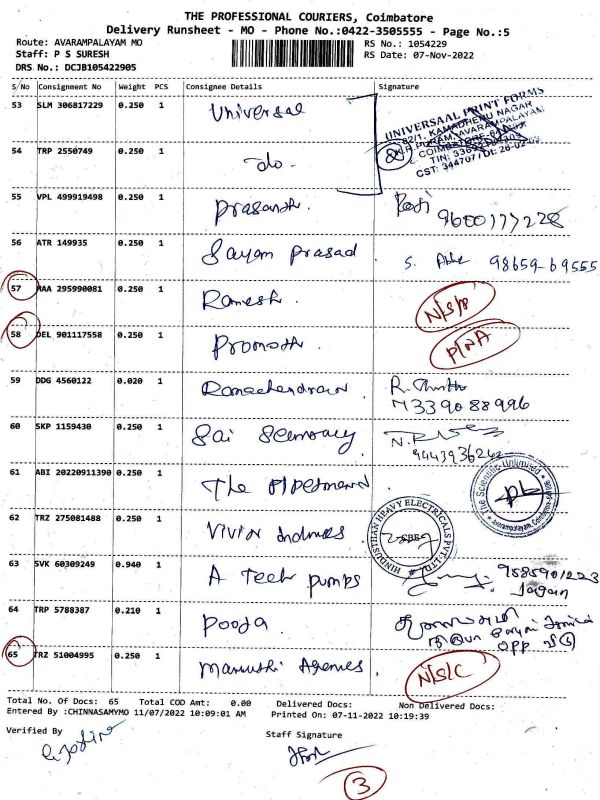 THE PROFESSIONAL COURIERS, Coimbatore
Delivery Runsheet - MO - Phone No.:0422-3505555 - Page No.:5
Route: AVARAMPALAYAM MO
RS No.: 1054229
Staff: P S SURESH
RS Date: 07-Nov-2022
DRS No.: DCJB105422905
S/No Consignment No Weight PCS Consignee Details Signature
53 SLM 306817229 0.250 1 Universal
UNIVERSAAL PRINT FORMS
KAMADHENU NAGAR
AVARAMPALAYAM
54 TRP 2550749 0.250 1 do.
55 VPL 499919498 0.250 1 Prasanth.
9600177228
56 ATR 149935 0.250 1 Sayam Prasad
98659-69555
57 MAA 295990081 0.250 1 Ramesh. N/S/P
58 DEL 901117558 0.250 1 Promoth P/NA
59 DDG 4560122 0.020 1 Ramachandran
60 SKP 1159430 0.250 1 Sai
61 ABI 20220911390 0.250 1 The
The Scientific Unlimited
62 TRZ 275081488 0.250 1
HINDUSTHAN HEAVY ELECTRICALS PVT.LTD
63 SVK 60309249 0.940 1 A Tech pumps
Jagan
64 TRP 5788387 0.210 1 Pooja
OPP
65 TRZ 51004995 0.250 1 Maruthi Agencies N/S/C
Total No. Of Docs: 65 Total COD Amt: 0.00 Delivered Docs: Non Delivered Docs:
Entered By :CHINNASAMYMO 11/07/2022 10:09:01 AM Printed On: 07-11-2022 10:19:39
Verified By
Staff Signature
3